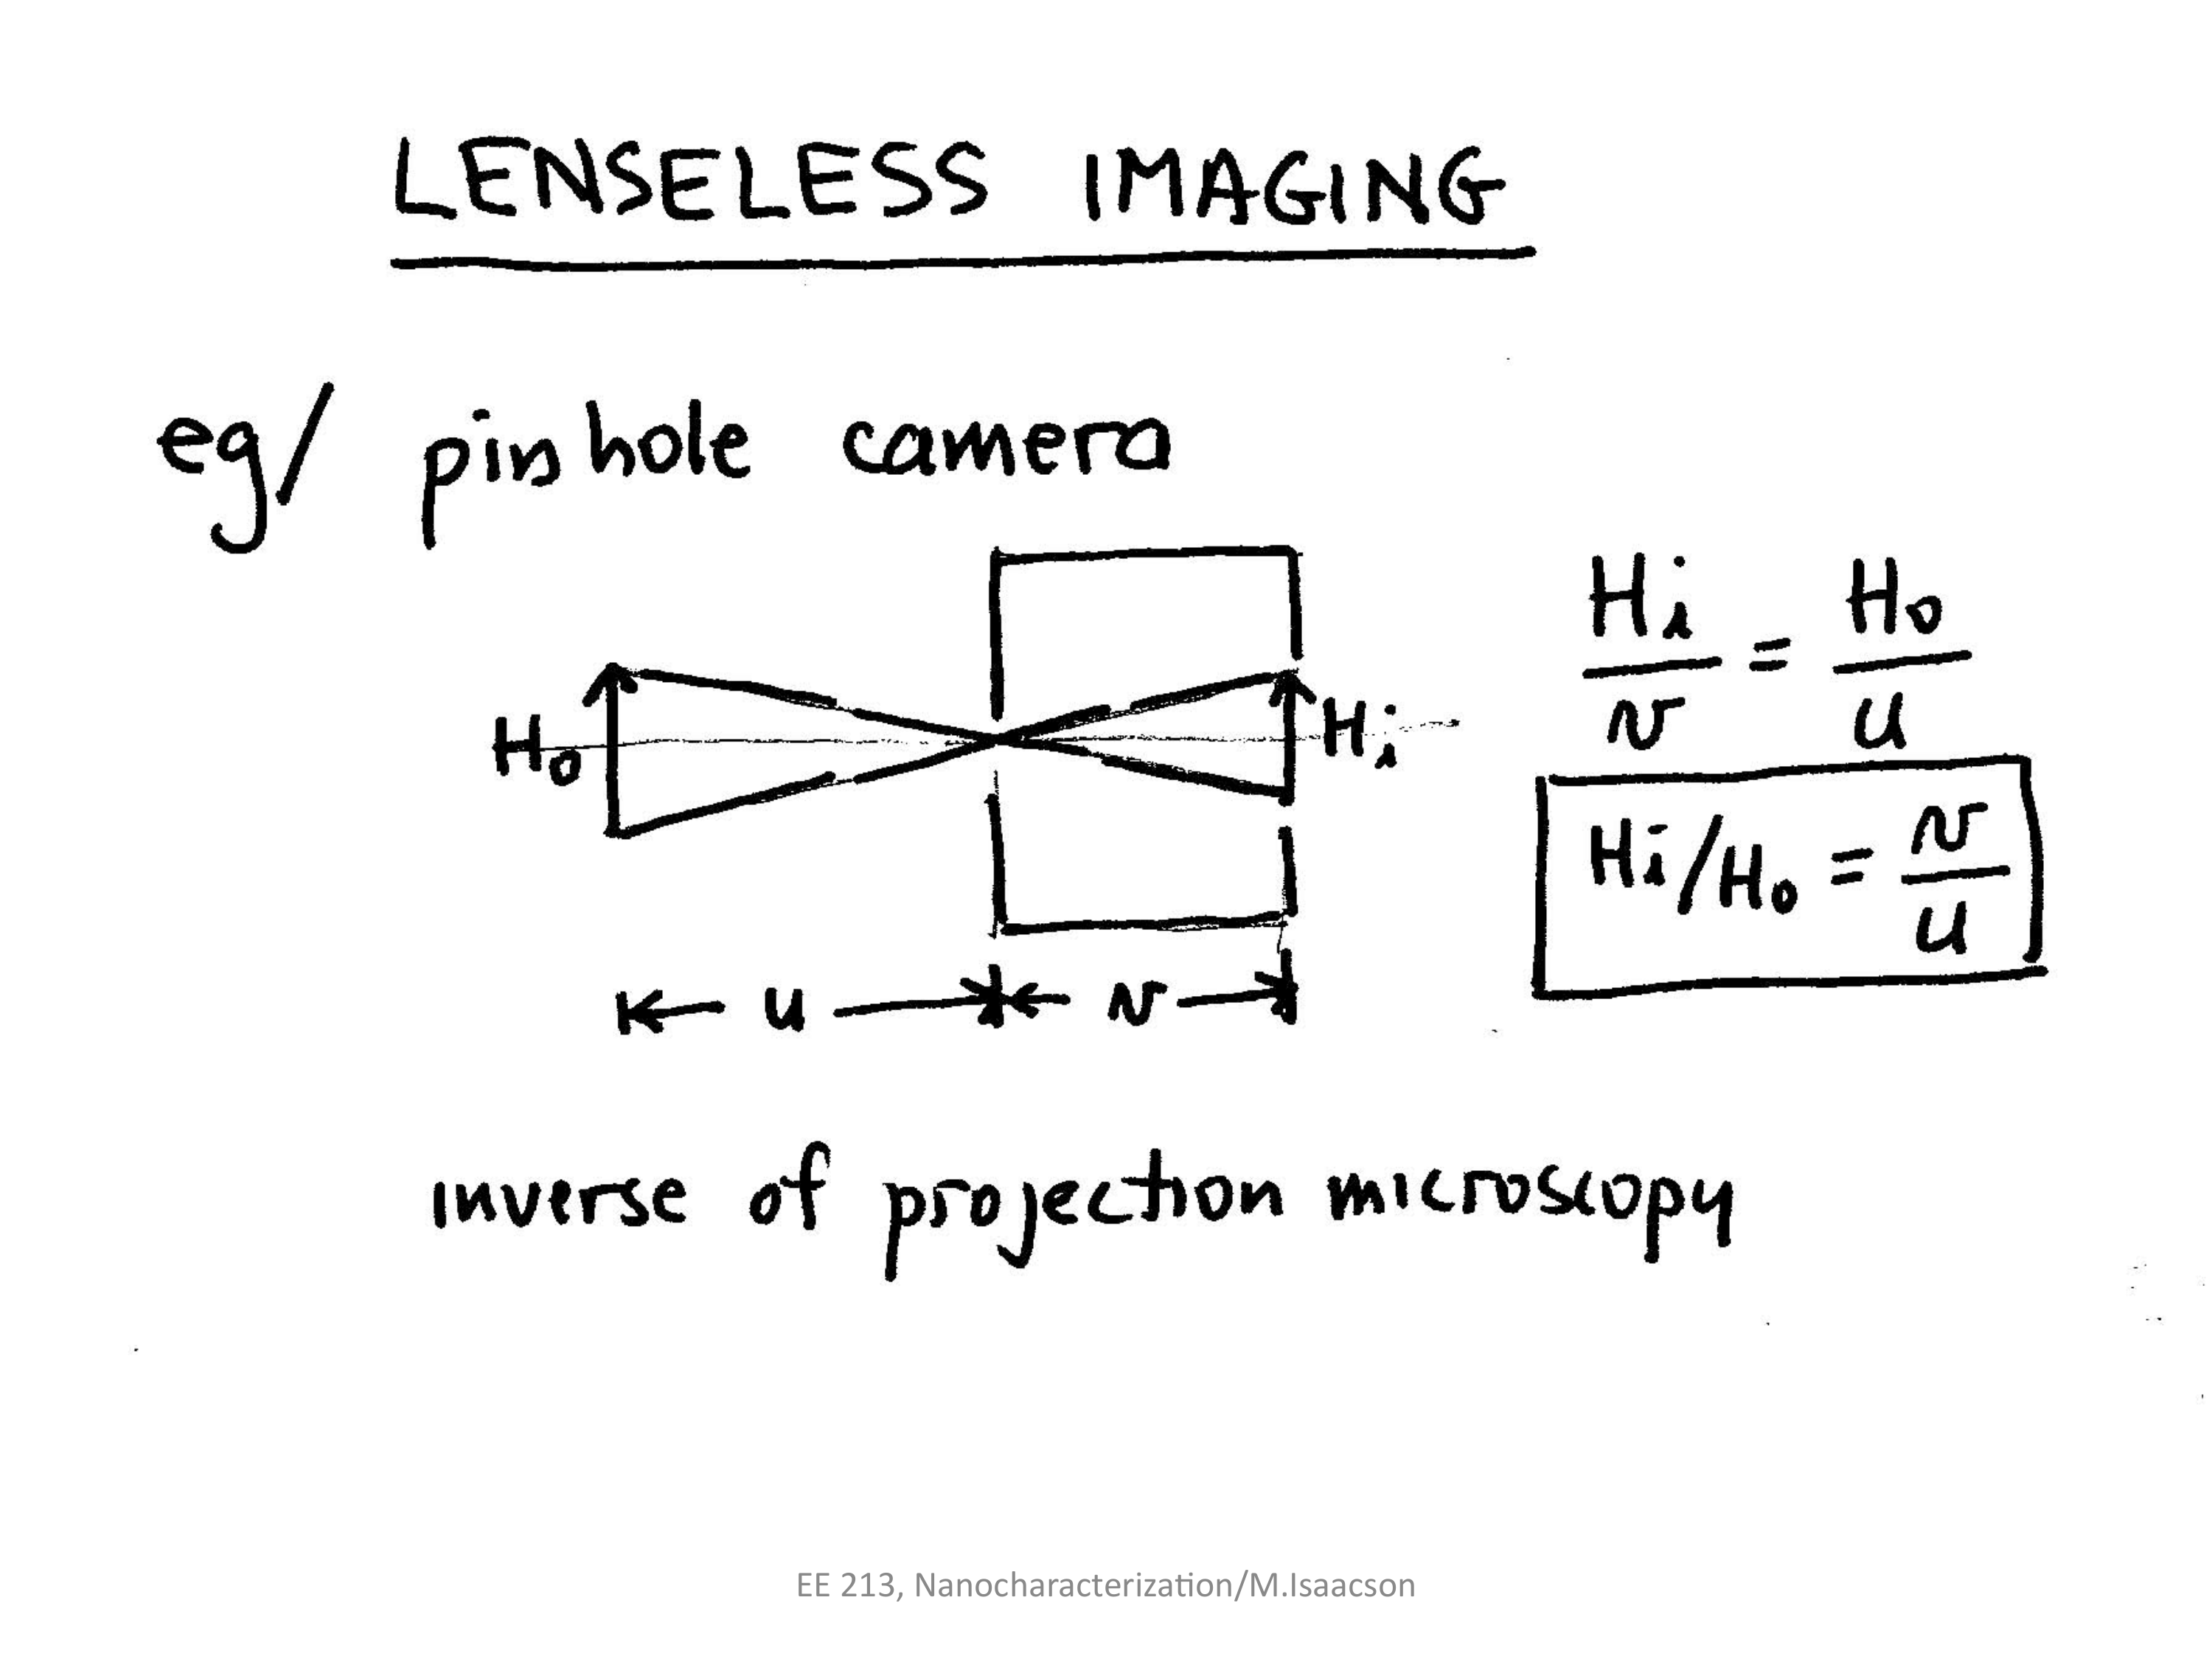 LENSELESS IMAGING
eg/ pinhole camera
Hi/v = Ho/u
Ho
Hi
Hi/Ho = v/u
u v
inverse of projection microscopy
EE 213, Nanocharacterization/M.Isaacson